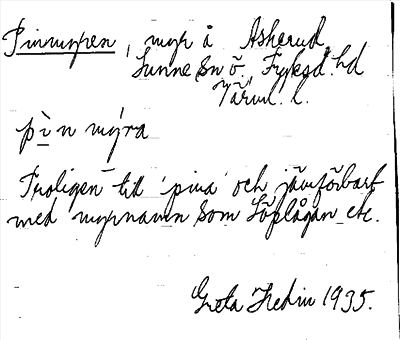 Pinmyren, myr å Askerud,
Sunne sn ö., Fryksd. hd
Värml. l.
pì n mýra
Troligen till 'pina' och jämförbart
med myrnamn som Löplågan etc.
Greta Hedin 1935.